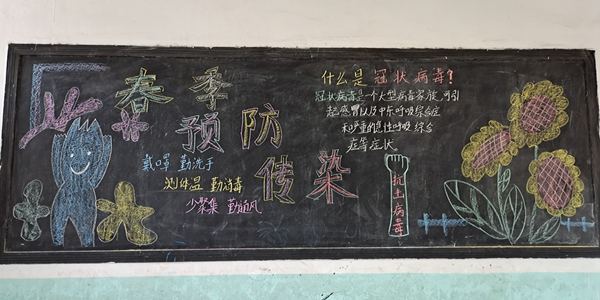 春季
预防
传染
戴口罩 勤洗手
测体温 勤消毒
少聚集 勤通风
什么是冠状病毒?
冠状病毒是一个大型病毒家族,可引
起感冒以及中东呼吸综合症
和严重的急性呼吸综合
症等症状
抗击病毒